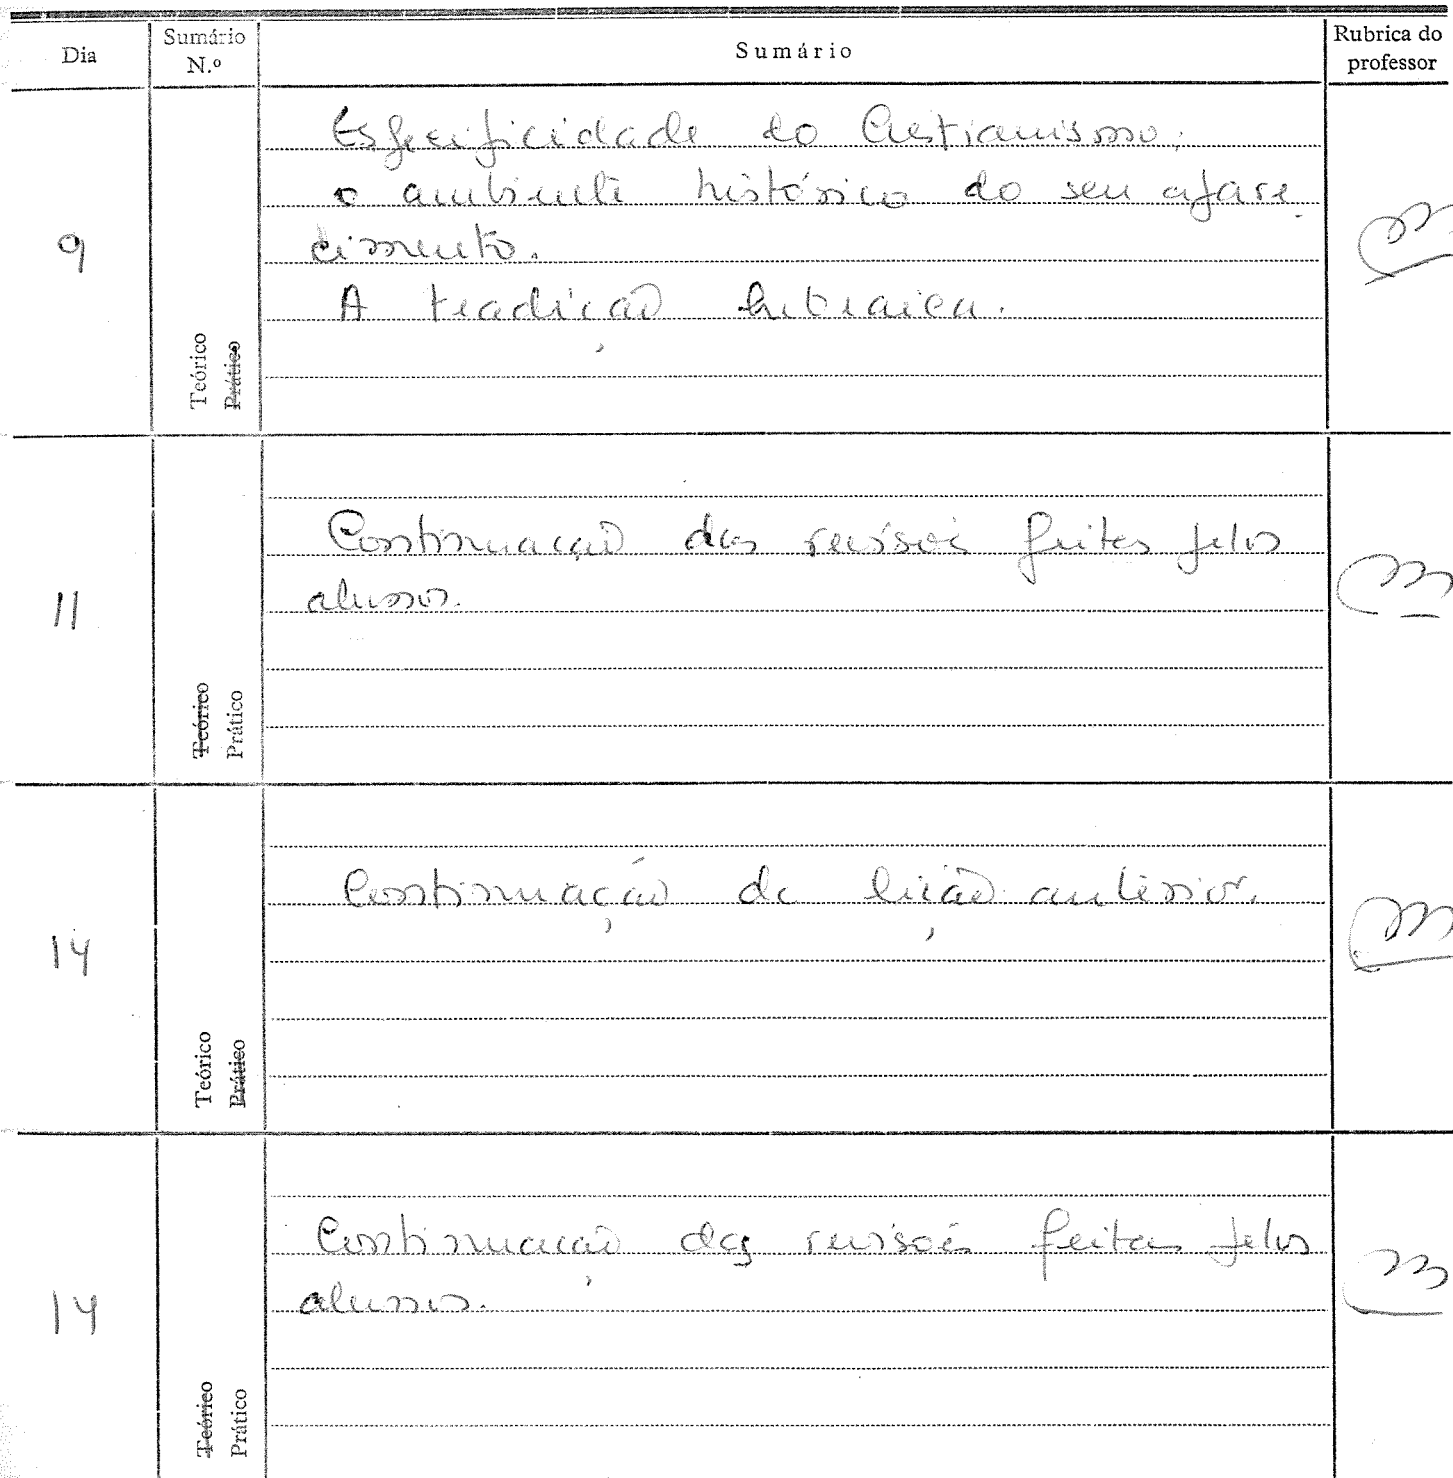 Dia
Sumário
N.º
Sumário
Rubrica do
professor
9
Teórico
Prático
Especificidade do Cristianismo:
o ambiente histórico do seu apare
cimento.
A tradição hebraica.
11
Teórico
Prático
Continuação das revisões feitas pelos
alunos.
14
Teórico
Prático
Continuação da lição anterior.
14
Teórico
Prático
Continuação das revisões feitas pelos
alunos.